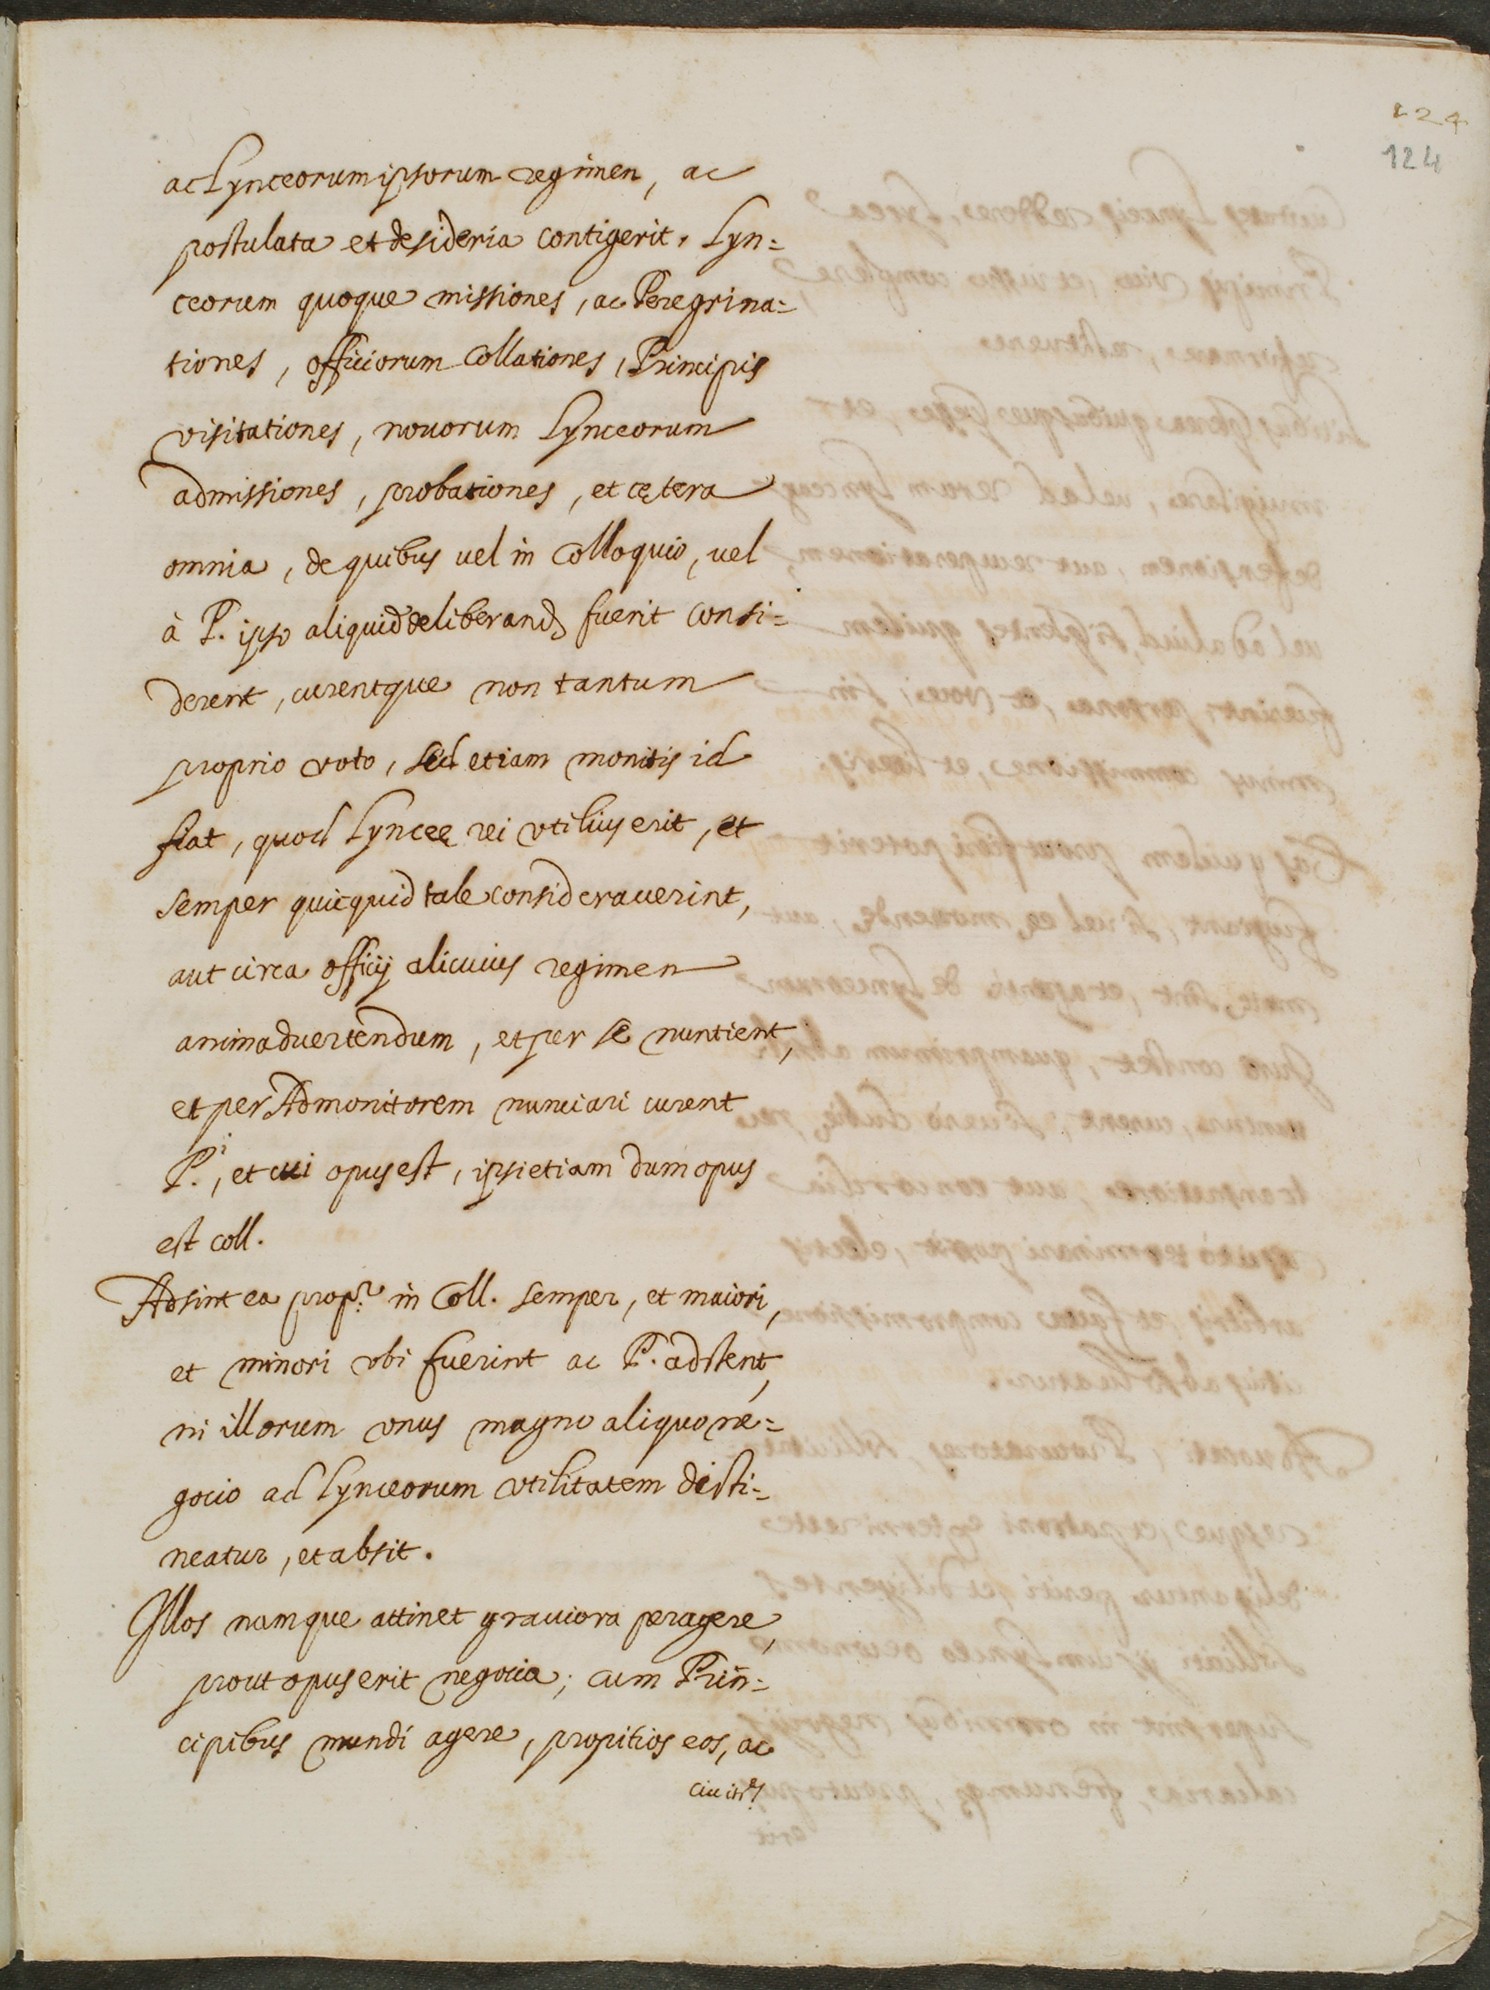 124
124
ac Lynceorum ipsorum regimen, ac
postulata et desideria contigerit, Lyn=
ceorum quoque missiones, ac Peregrina=
tiones, officiorum collationes, Principis
visitationes, nouorum Lynceorum
admissiones, probationes, et cętera
omnia, de quibus uel in Colloquio, uel
à P. ipso aliquid deliberand fuerit consi=
derent, curentque non tantum
proprio voto, sed etiam monitis id
fiat, quod Lynceę rei vtilius erit, et
semper quicquid tale considerauerint,
aut circa officij alicuius regimen
animaduertendum, et per se nuntient,
et per Admonitorem nunciari curent
P.i, et cui opus est, ipsi etiam dum opus
est coll.
Adsint ea prop.r in Coll. semper, et maiori,
et minori vbi fuerint ac P. adstent,
ni illorum vnus magno aliquo ne=
gocio ad Lynceorum vtilitatem disti=
neatur, et absit.
Illos namque attinet grauiora peragere,
prout opus erit negocia; cum Prin=
cipibus mundi agere, propitios eos, ac